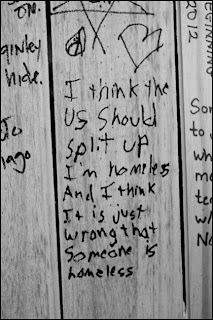 on.
ginley
hide.
To
iago
I think the
US Should
split up
I'm homeless
And I think
It is just
wrong that
Someone is
homeless
EGINNING
2012
Son
to
wh
me
tea
w/
No